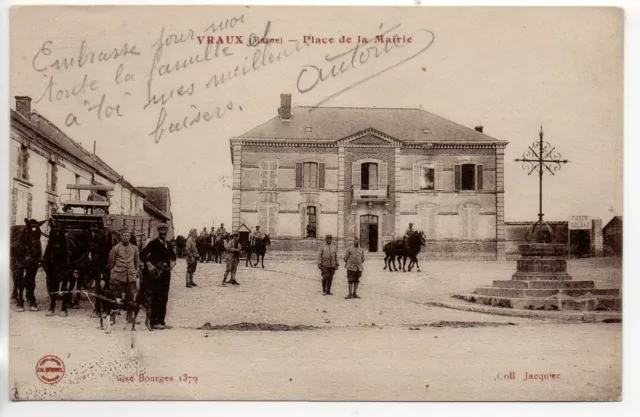 VRAUX (Marne) — Place de la Mairie
Embrasse pour moi
toute ta famille &
à toi mes meilleurs
baisers.
Antoine
POSTE
Bourges 1379
Coll Jacquier